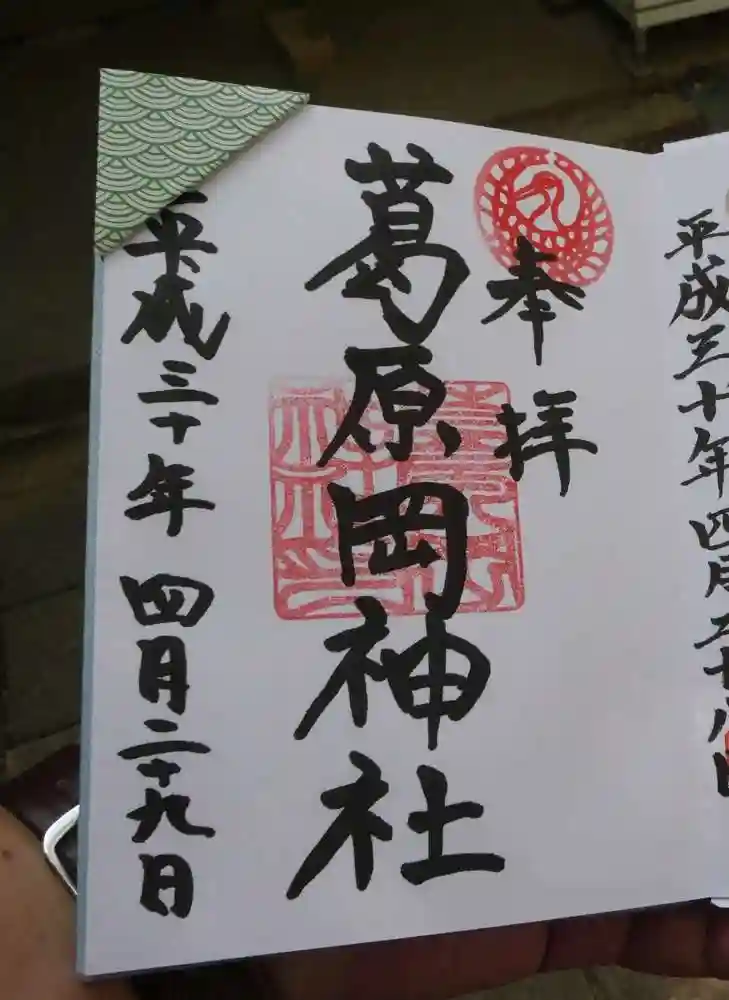 平成三十年四月二十八日
奉拝
葛原岡神社
平成三十年四月二十九日